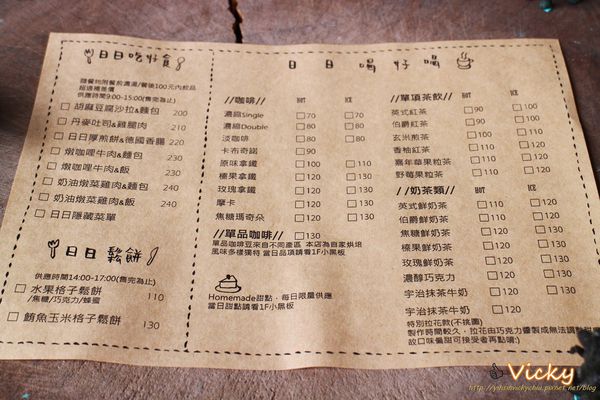 日日吃好食
隨餐均附餐前濃湯/餐後100元內飲品
超過補差價
供應時間9:00-15:00(售完為止)
胡麻豆腐沙拉&麵包 200
丹麥吐司&雞腿肉 210
日日厚煎餅&德國香腸 220
燉咖哩牛肉&麵包 230
燉咖哩牛肉&飯 230
奶油燉菜雞肉&麵包 240
奶油燉菜雞肉&飯 240
日日隱藏菜單
日日鬆餅
供應時間14:00-17:00(售完為止)
水果格子鬆餅 110
/焦糖/巧克力/蜂蜜
鮪魚玉米格子鬆餅 130
日日喝好喝
//咖啡// HOT ICE
濃縮Single 70 70
濃縮Double 80 80
淡咖啡 80 80
卡布奇諾 90
原味拿鐵 100 110
榛果拿鐵 120 130
玫瑰拿鐵 120 130
摩卡 120 130
焦糖瑪奇朵 120 130
//單品咖啡// 130
單品咖啡豆來自不同產區 本店為自家烘焙
風味多樣獨特 當日品項請看1F小黑板
Homemade甜點,每日限量供應
當日甜點請看1F小黑板
//單項茶飲// HOT ICE
英式紅茶 90 100
伯爵紅茶 90 100
玄米煎茶 100 110
香柚紅茶 110 120
嘉年華果粒茶 110 120
野莓果粒茶 110 120
//奶茶類// HOT ICE
英式鮮奶茶 110 120
伯爵鮮奶茶 110 120
焦糖鮮奶茶 120 130
榛果鮮奶茶 120 130
玫瑰鮮奶茶 120 130
濃醇巧克力 110 120
宇治抹茶牛奶 110 120
宇治抹茶牛奶 120
特別拉花款(不挑圖)
製作時間較久,拉花由巧克力醬製成無法調整甜度
故口味偏甜可接受者再點唷:)
Vicky